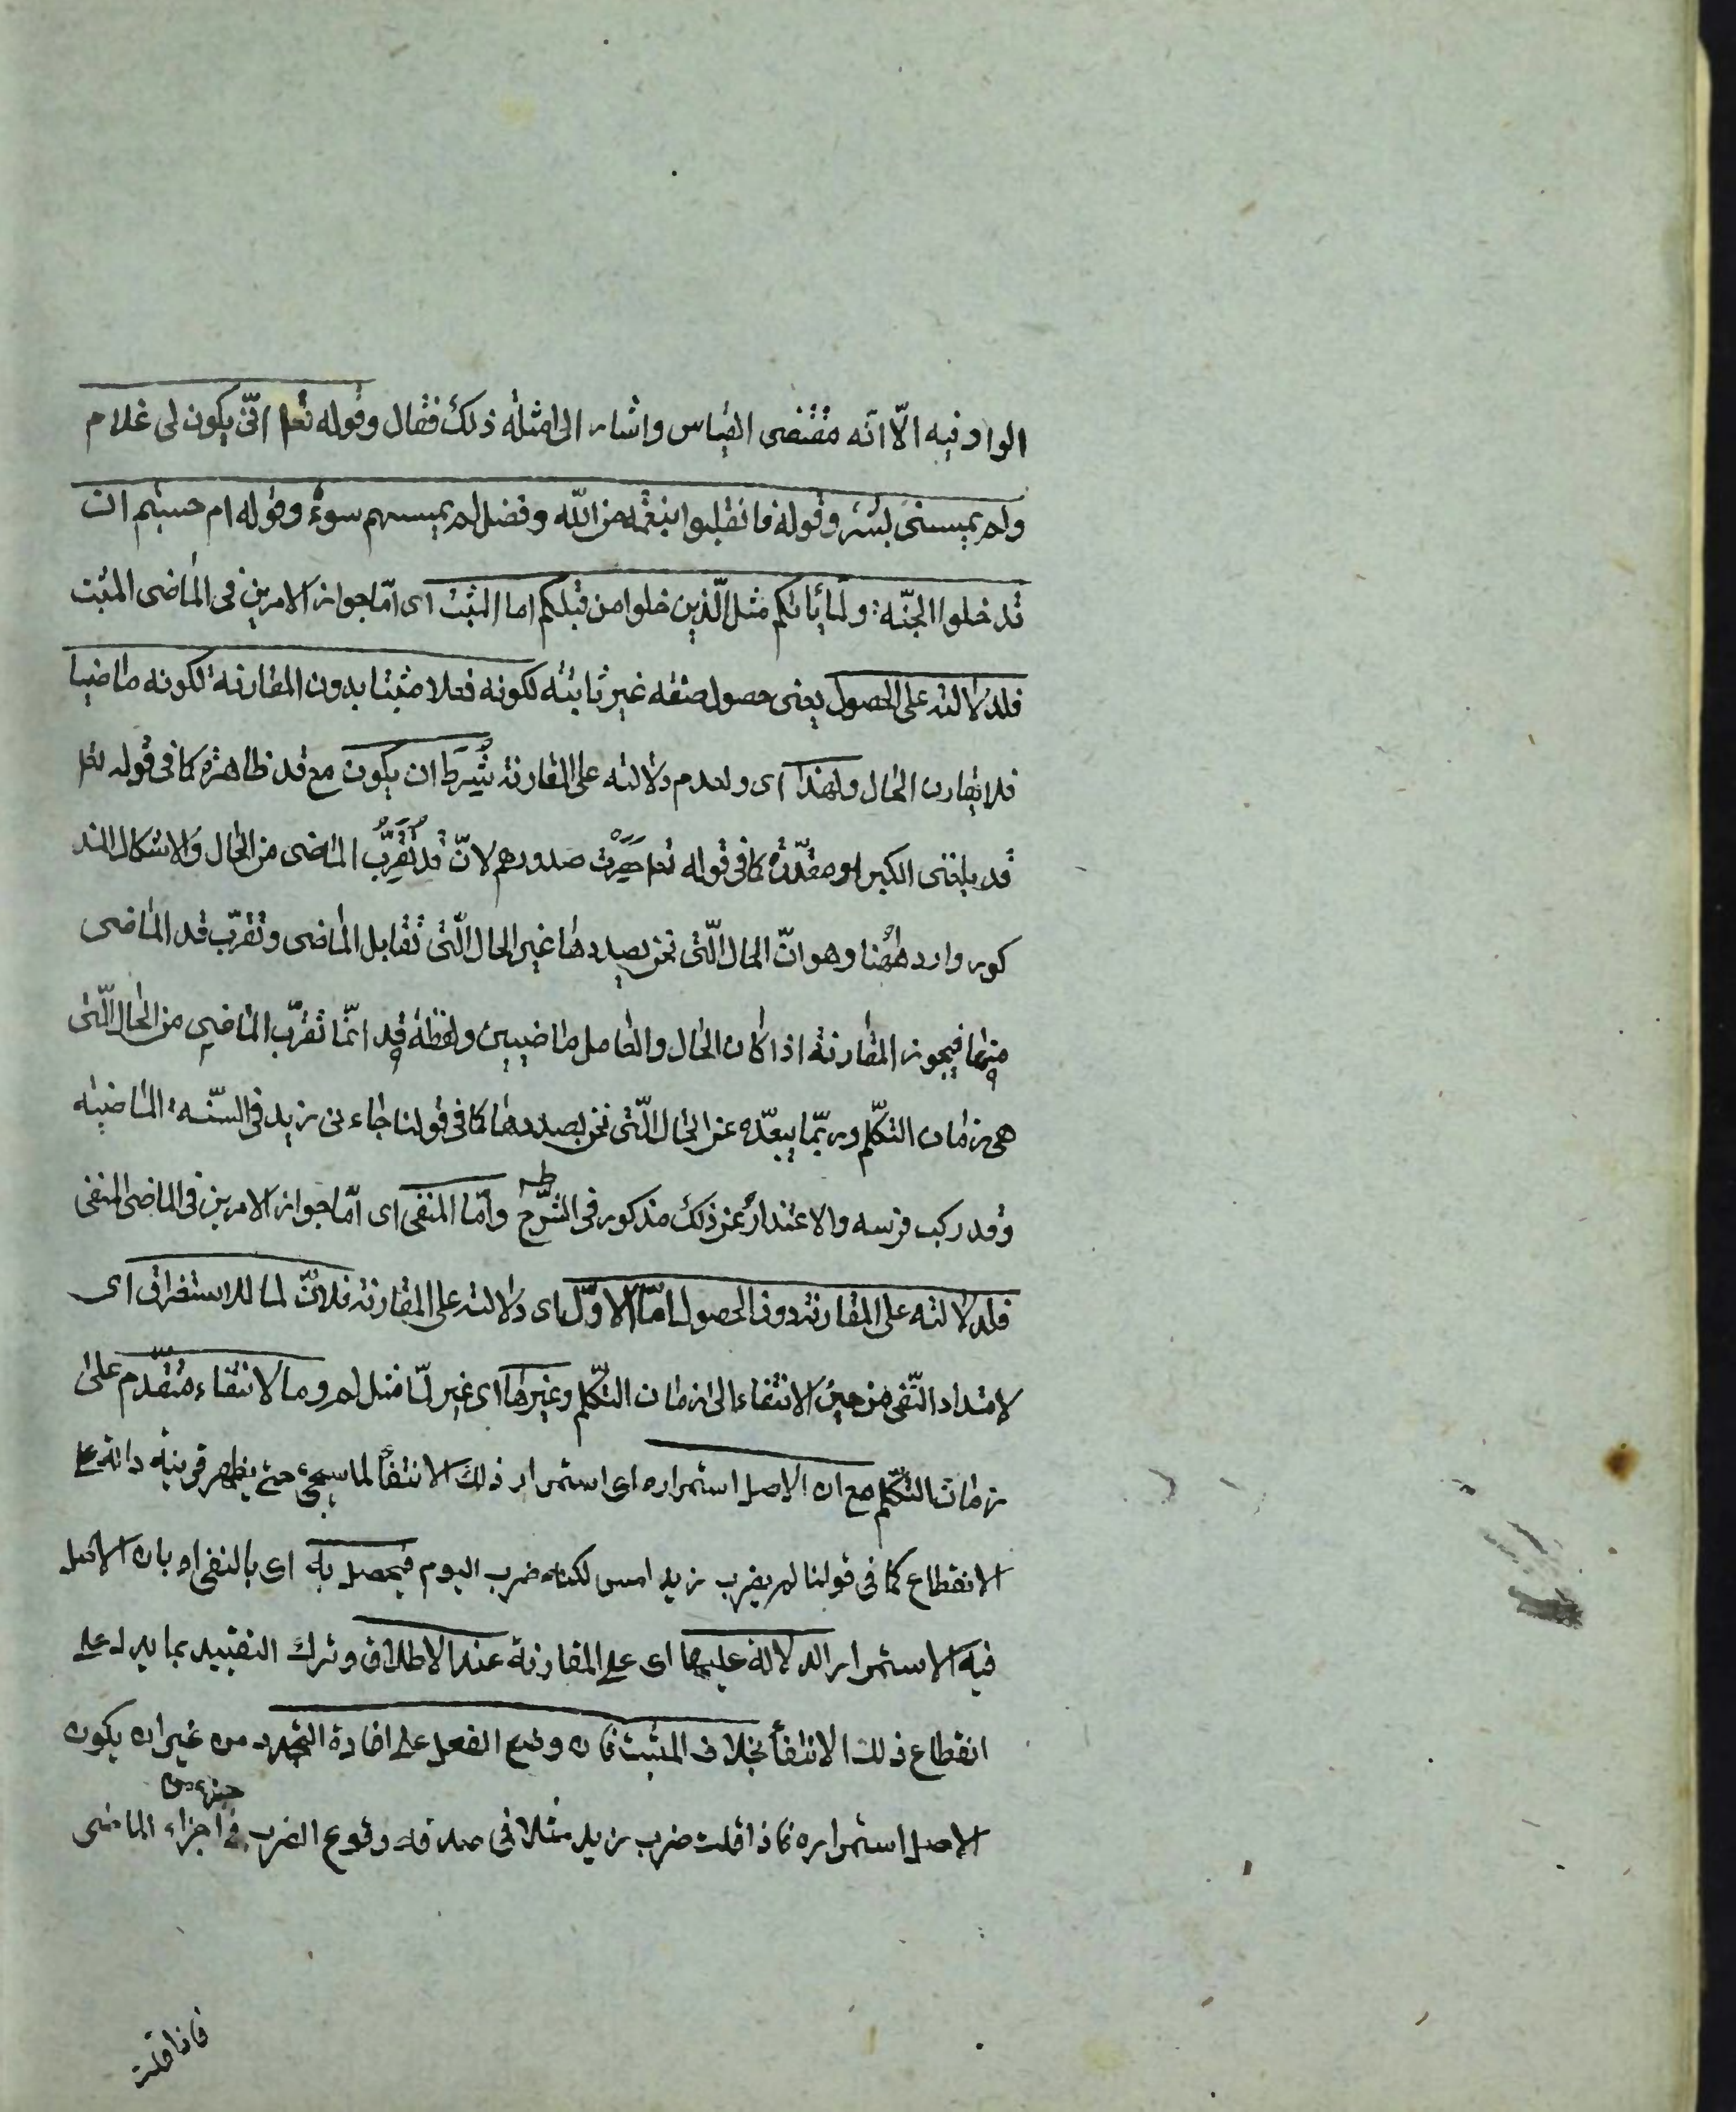 الواو فيه الّا انّه مقتضى القياس واشار الى امثلة ذلك فقال وقوله تعا انّى يكون لى غلام
ولم يمسسنى بشر وقوله فانقلبوا بنعمة من الله وفضل لم يمسسهم سوء وقوله ام حسبتم ان
تدخلوا الجنّه ولمّا ياتكم مثل الّذين خلوا من قبلكم اما المثبت اى امّا جواز الامرين فى الماضى المثبت
فلدلالته على الحصول يعنى حصول صفه غير ثابته لكونه فعلا مثبتا بدون المقارنة لكونه ماضيا
فلا يقارن الحال ولهذا اى ولعدم دلالته على المقارنة شُرط ان يكون مع قد ظاهرة كما فى قوله تعا
قد بلغنى الكبر او مقدّرة كما فى قوله تعا حصرت صدورهم لانّ قد تُقرِّبُ الماضى من الحال والاشكال المذ
كور وارد ههنا وهو انّ الحال الّتى نحن بصددها غير الحال الّتى تقابل الماضى وتقرّب قد الماضى
منها فيجوز المقارنة اذا كان الحال والعامل ماضيين ولفظة قد انّما تقرّب الماضى من الحال الّتى
هى زمان التكلّم وربّما يبعّده عن الحال الّتى نحن بصددها كما فى قولنا جاءنى زيد فى السّنة الماضيه
وقد ركب فرسه والاعتذار عن ذلك مذكور فى الشّرح وامّا المنفى اى امّا جواز الامرين فى الماضى المنفى
فلدلالته على المقارنة دون الحصول امّا الاوّل اى دلالته على المقارنة فلانّ لما للاستغراق اى
لامتداد النّفى من حين الانتفاء الى زمان التكلّم وغيرها اى غير لمّا مثل لم وما لانتفاء متقدّم على
زمان التكلّم مع ان الاصل استمراره اى استمرار ذلك الانتفأ لما سيجئ حتى يظهر قرينة دالة على
الانقطاع كما فى قولنا لم يضرب زيد امس لكنه ضرب اليوم فيحصل به اى بالنفى او بان الاصل
فيه الاستمرار الدلالة عليها اى على المقارنة عند الاطلاق وترك التقييد بما يدل على
انقطاع ذلك الانتفأ بخلاف المثبت فان وضع الفعل على افادة التجدد من غير ان يكون
جزء من
الاصل استمراره فاذا قلت ضرب زيد مثلا فى صدقه وقوع الضرب فى اجزاء الماضى
فاذا قلت